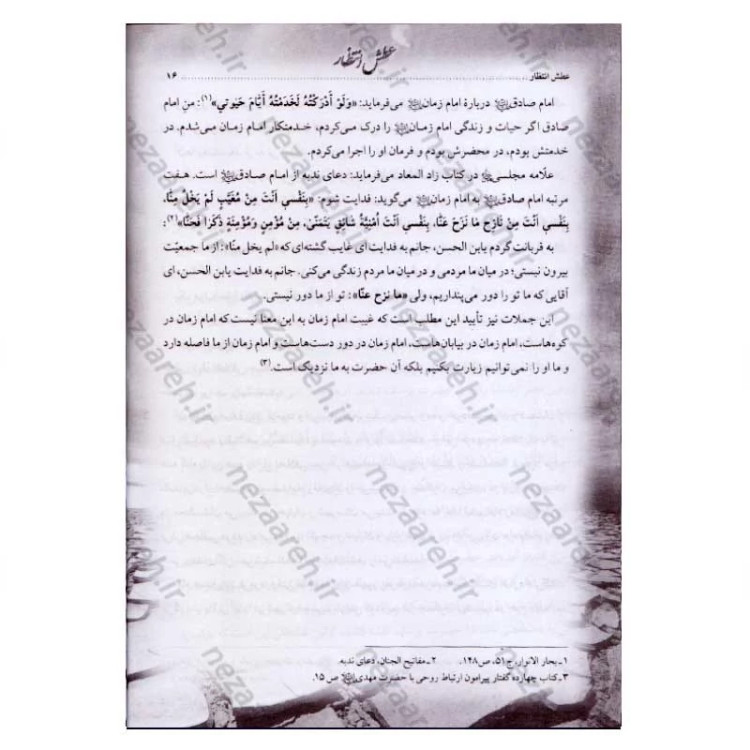 عطش انتظار
عطش انتظار ........ ۱۶
امام صادق علیه السلام دربارهٔ امام زمان علیه السلام می‌فرماید: «وَلَوْ أَدْرَکْتُهُ لَخَدَمْتُهُ أَیَّامَ حَیٰوتي»(۱): منِ امام
صادق اگر حیات و زندگی امام زمان علیه السلام را درک می‌کردم، خدمتکار امام زمان می‌شدم. در
خدمتش بودم، در محضرش بودم و فرمان او را اجرا می‌کردم.
علّامه مجلسی در کتاب زاد المعاد می‌فرماید: دعای ندبه از امام صادق علیه السلام است. هفت
مرتبه امام صادق علیه السلام به امام زمان علیه السلام می‌گوید: فدایت شوم: «بِنَفْسي أَنْتَ مِنْ مُغَیَّبٍ لَمْ یَخْلُ مِنَّا،
بِنَفْسي أَنْتَ مِنْ نَازِحٍ مَا نَزَحَ عَنَّا، بِنَفْسي أَنْتَ أُمْنِیَّةُ شَائِقٍ یَتَمَنَّیٰ، مِنْ مُؤْمِنٍ وَمُؤْمِنَةٍ ذَکَرَا فَحَنَّا»(۲):
به قربانت گردم یابن الحسن، جانم به فدایت ای غایب گشته‌ای که «لم یخل منّا»: از ما جمعیّت
بیرون نیستی؛ در میان ما مردمی و در میان ما مردم زندگی می‌کنی. جانم به فدایت یابن الحسن، ای
آقایی که ما تو را دور می‌پنداریم، ولی «ما نزح عنّا»: تو از ما دور نیستی.
این جملات نیز تأیید این مطلب است که غیبت امام زمان به این معنا نیست که امام زمان در
کوه‌هاست، امام زمان در بیابان‌هاست، امام زمان در دور دست‌هاست و امام زمان از ما فاصله دارد
و ما او را نمی‌توانیم زیارت بکنیم بلکه آن حضرت به ما نزدیک است.(۳)
۱ـ بحار الانوار، ج ۵۱، ص ۱۴۸. ۲ـ مفاتیح الجنان، دعای ندبه.
۳ـ کتاب چهارده گفتار پیرامون ارتباط روحی با حضرت مهدی علیه السلام ص ۱۵.
nezaareh.ir